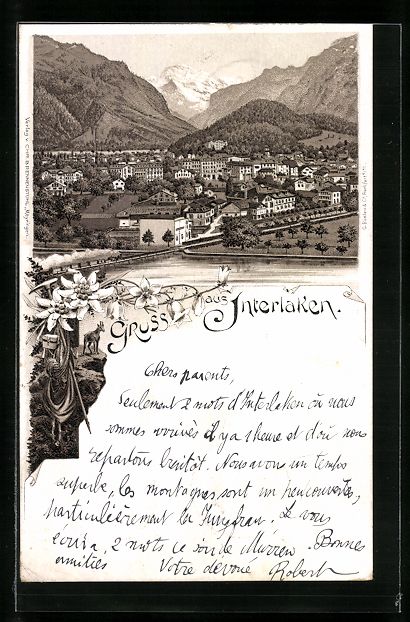 Gruss aus Interlaken.
Chers parents,
Seulement 2 mots d'Interlaken où nous
sommes arrivés il y a 1 heure et d'où nous
repartons bientôt. Nous avons un temps
superbe, les montagnes sont un peu couvertes,
particulièrement la Jungfrau. Je vous
écrirai 2 mots ce soir de Mürren. Bonnes
amitiés Votre dévoué Robert